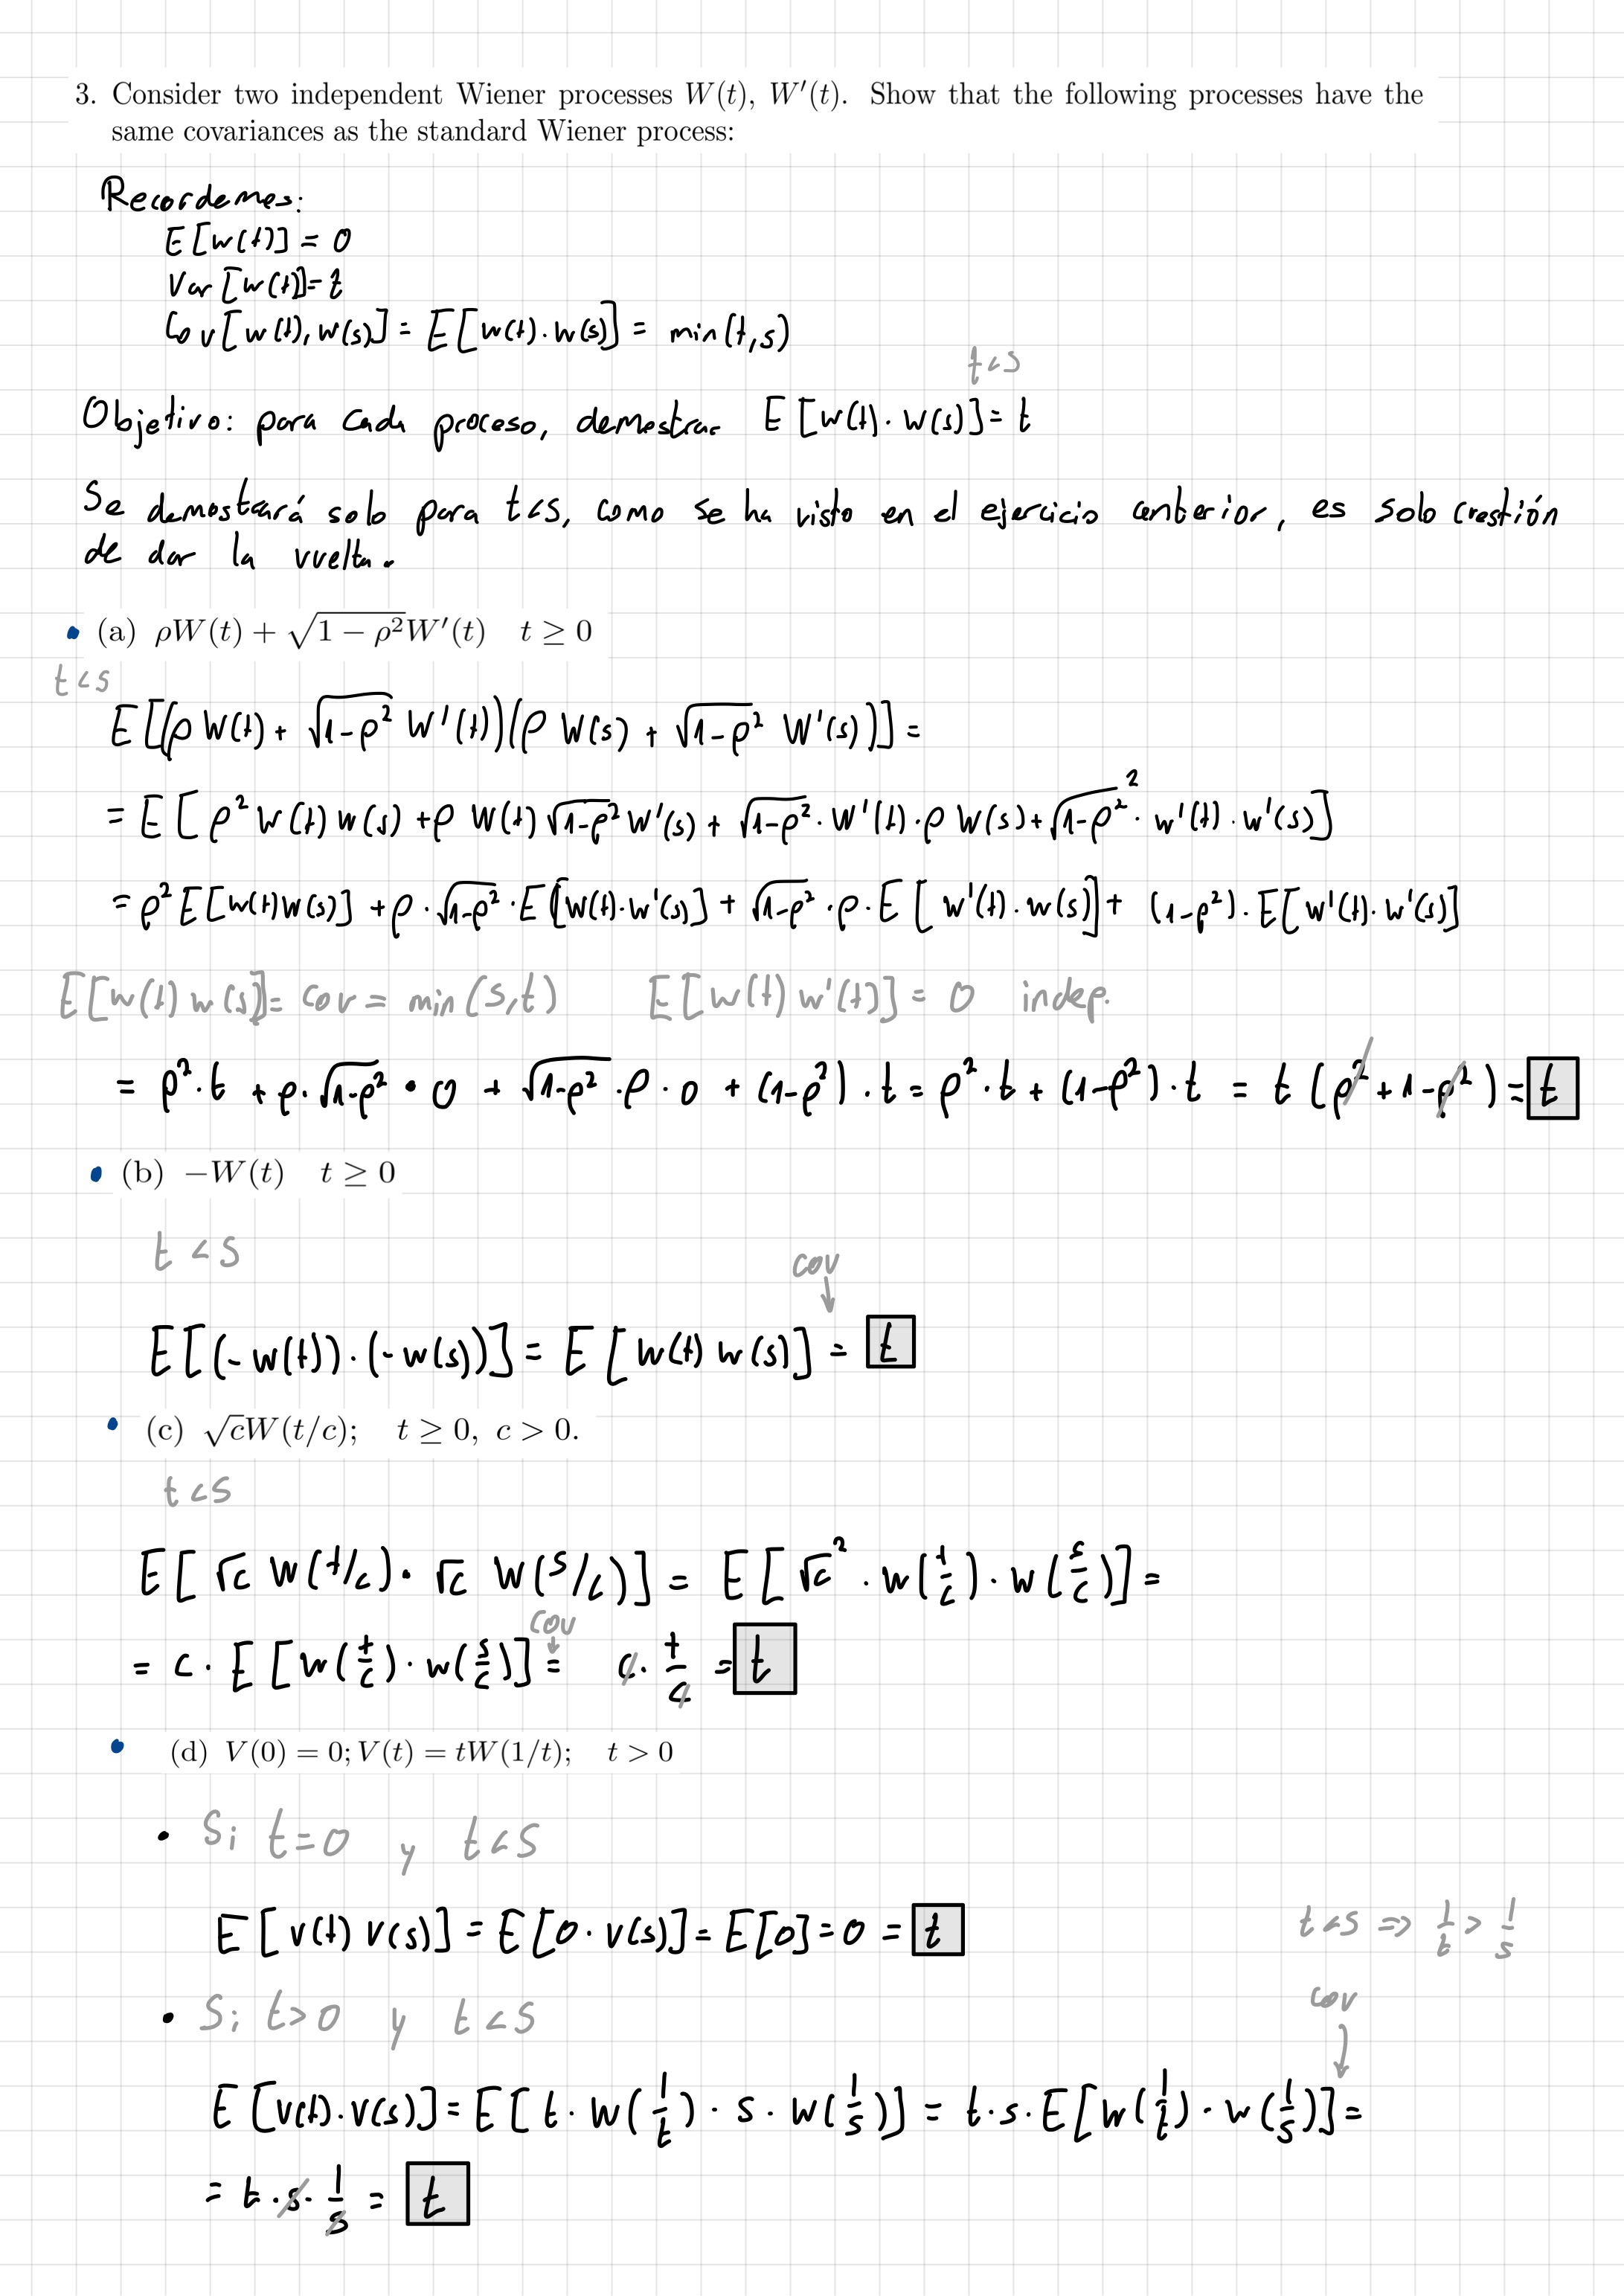 3. Consider two independent Wiener processes W(t), W′(t). Show that the following processes have the
same covariances as the standard Wiener process:
Recordemos:
E[w(t)] = 0
Var[w(t)] = t
Cov[w(t), w(s)] = E[w(t)·w(s)] = min(t,s)
t<s
Objetivo: para cada proceso, demostrar E[w(t)·w(s)] = t
Se demostrará solo para t<s, como se ha visto en el ejercicio anterior, es solo cuestión
de dar la vuelta.
• (a) ρW(t) + √(1−ρ²)W′(t) t ≥ 0
t<s
E[(ρ W(t) + √(1-ρ²) W'(t))(ρ W(s) + √(1-ρ²) W'(s))] =
= E[ρ² w(t) w(s) + ρ W(t) √(1-ρ²) W'(s) + √(1-ρ²) · W'(t) · ρ W(s) + √(1-ρ²)² · w'(t) · w'(s)]
= ρ² E[w(t)w(s)] + ρ · √(1-ρ²) · E[w(t)·w'(s)] + √(1-ρ²) · ρ · E[w'(t)·w(s)] + (1-ρ²) · E[w'(t)·w'(s)]
E[w(t) w(s)] = cov = min(s,t) E[w(t) w'(t)] = 0 indep.
= ρ²·t + ρ·√(1-ρ²) · 0 + √(1-ρ²)·ρ·0 + (1-ρ²)·t = ρ²·t + (1-ρ²)·t = t(ρ²+1-ρ²) = t
• (b) −W(t) t ≥ 0
t<s
cov
↓
E[(-w(t))·(-w(s))] = E[w(t) w(s)] = t
• (c) √cW(t/c); t ≥ 0, c > 0.
t<s
E[√c W(t/c) · √c W(s/c)] = E[√c² · w(t/c) · w(s/c)] =
cov
↓
= c · E[w(t/c) · w(s/c)] = c · t/c = t
• (d) V(0) = 0; V(t) = tW(1/t); t > 0
• Si t=0 y t<s
E[v(t) v(s)] = E[0·v(s)] = E[0] = 0 = t
t<s => 1/t > 1/s
• Si t>0 y t<s
cov
↓
E[v(t)·v(s)] = E[t · w(1/t) · s · w(1/s)] = t·s·E[w(1/t) · w(1/s)] =
= t·s·1/s = t